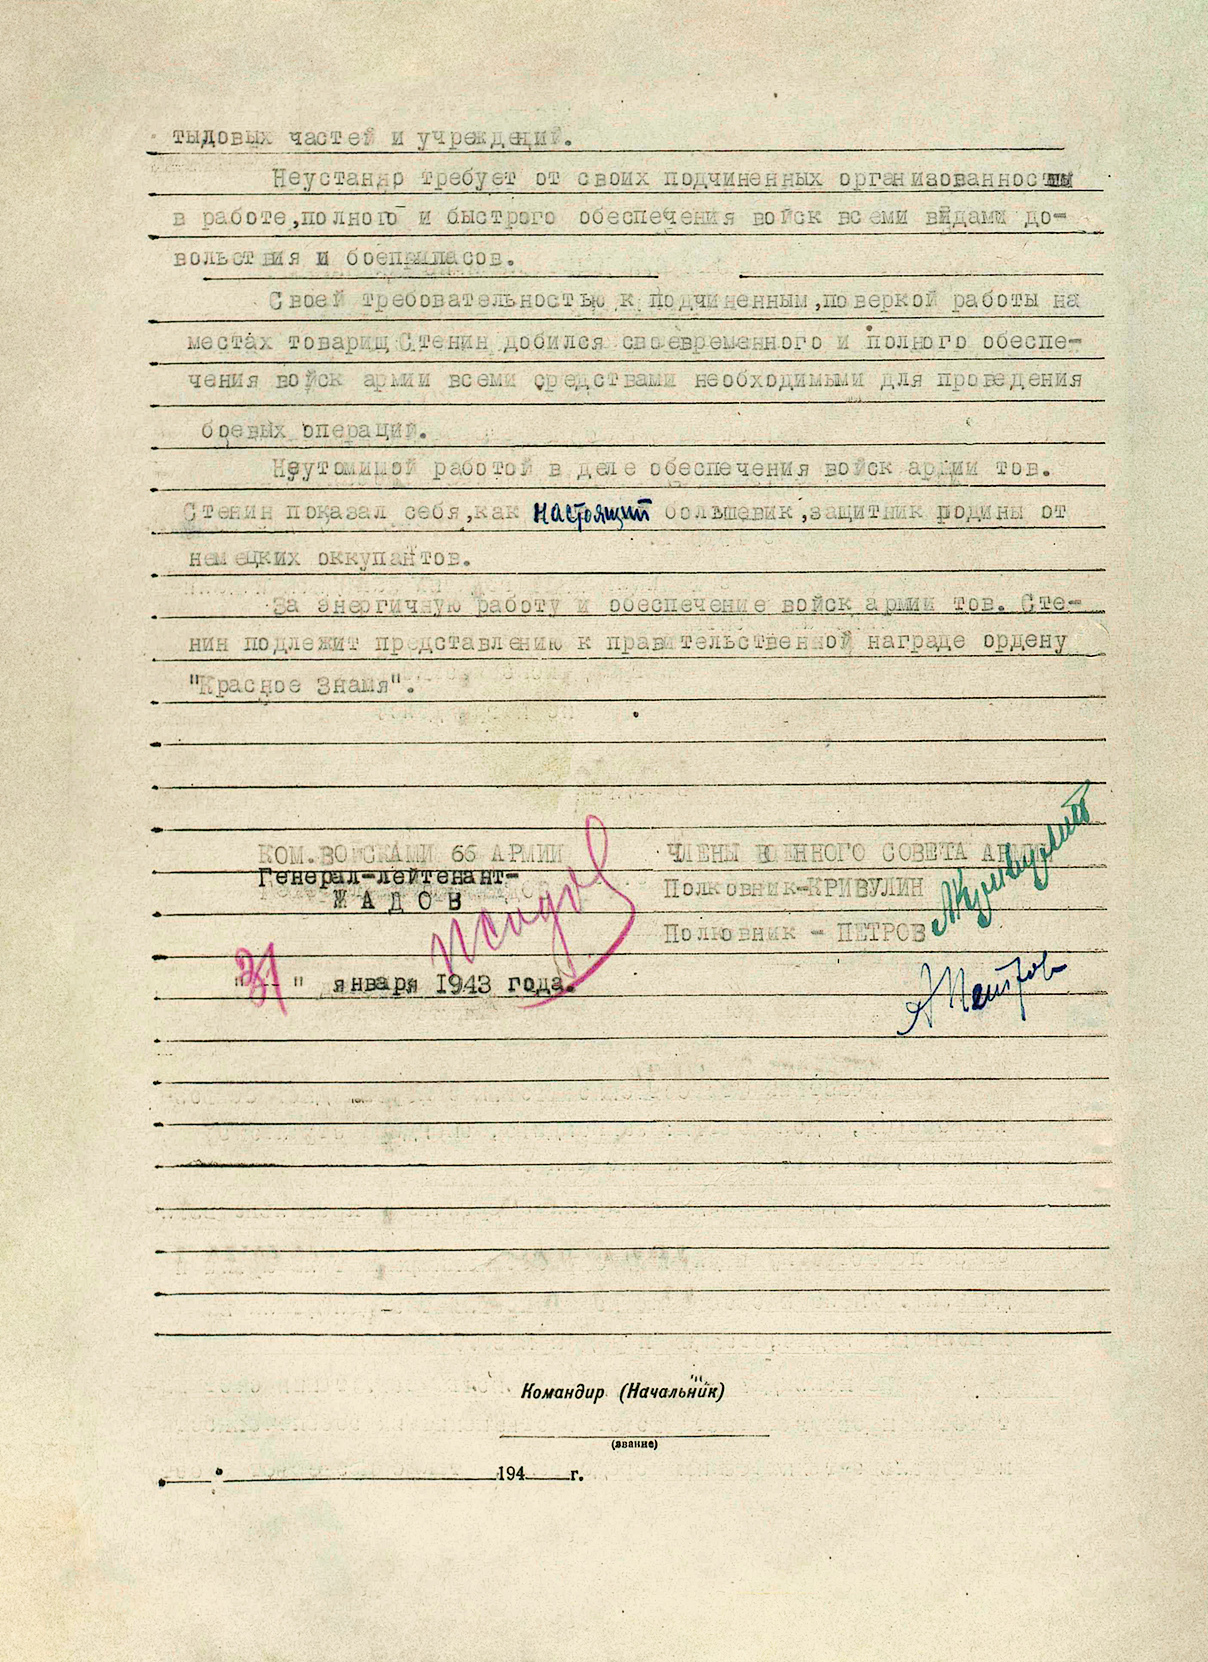 тыловых частей и учреждений.
Неустанно требует от своих подчиненных организованности
в работе,полного и быстрого обеспечения войск всеми видами до-
вольствия и боеприпасов.
Своей требовательностью к подчиненным,поверкой работы на
местах товарищ Стенин добился своевременного и полного обеспе-
чения войск армии всеми средствами необходимыми для проведения
боевых операций.
Неутомимой работой в деле обеспечения войск армии тов.
Стенин показал себя,как настоящий большевик,защитник родины от
немецких оккупантов.
За энергичную работу и обеспечение войск армии тов. Сте-
нин подлежит представлению к правительственной награде ордену
"Красное Знамя".
КОМ.ВОЙСКАМИ 66 АРМИИ
Генерал-лейтенант-
ЖАДОВ
ЧЛЕНЫ ВОЕННОГО СОВЕТА АРМИИ
Полковник-КРИВУЛИН
Полковник - ПЕТРОВ
" " января 1943 года.
Жадов
Кривулин
АПетров
Командир (Начальник)
(звание)
194 г.